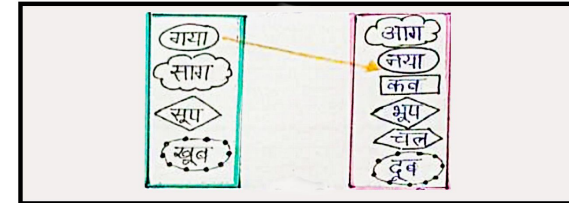 गया
साग
सूप
खूब
आग
नया
कब
भूप
चल
दूब